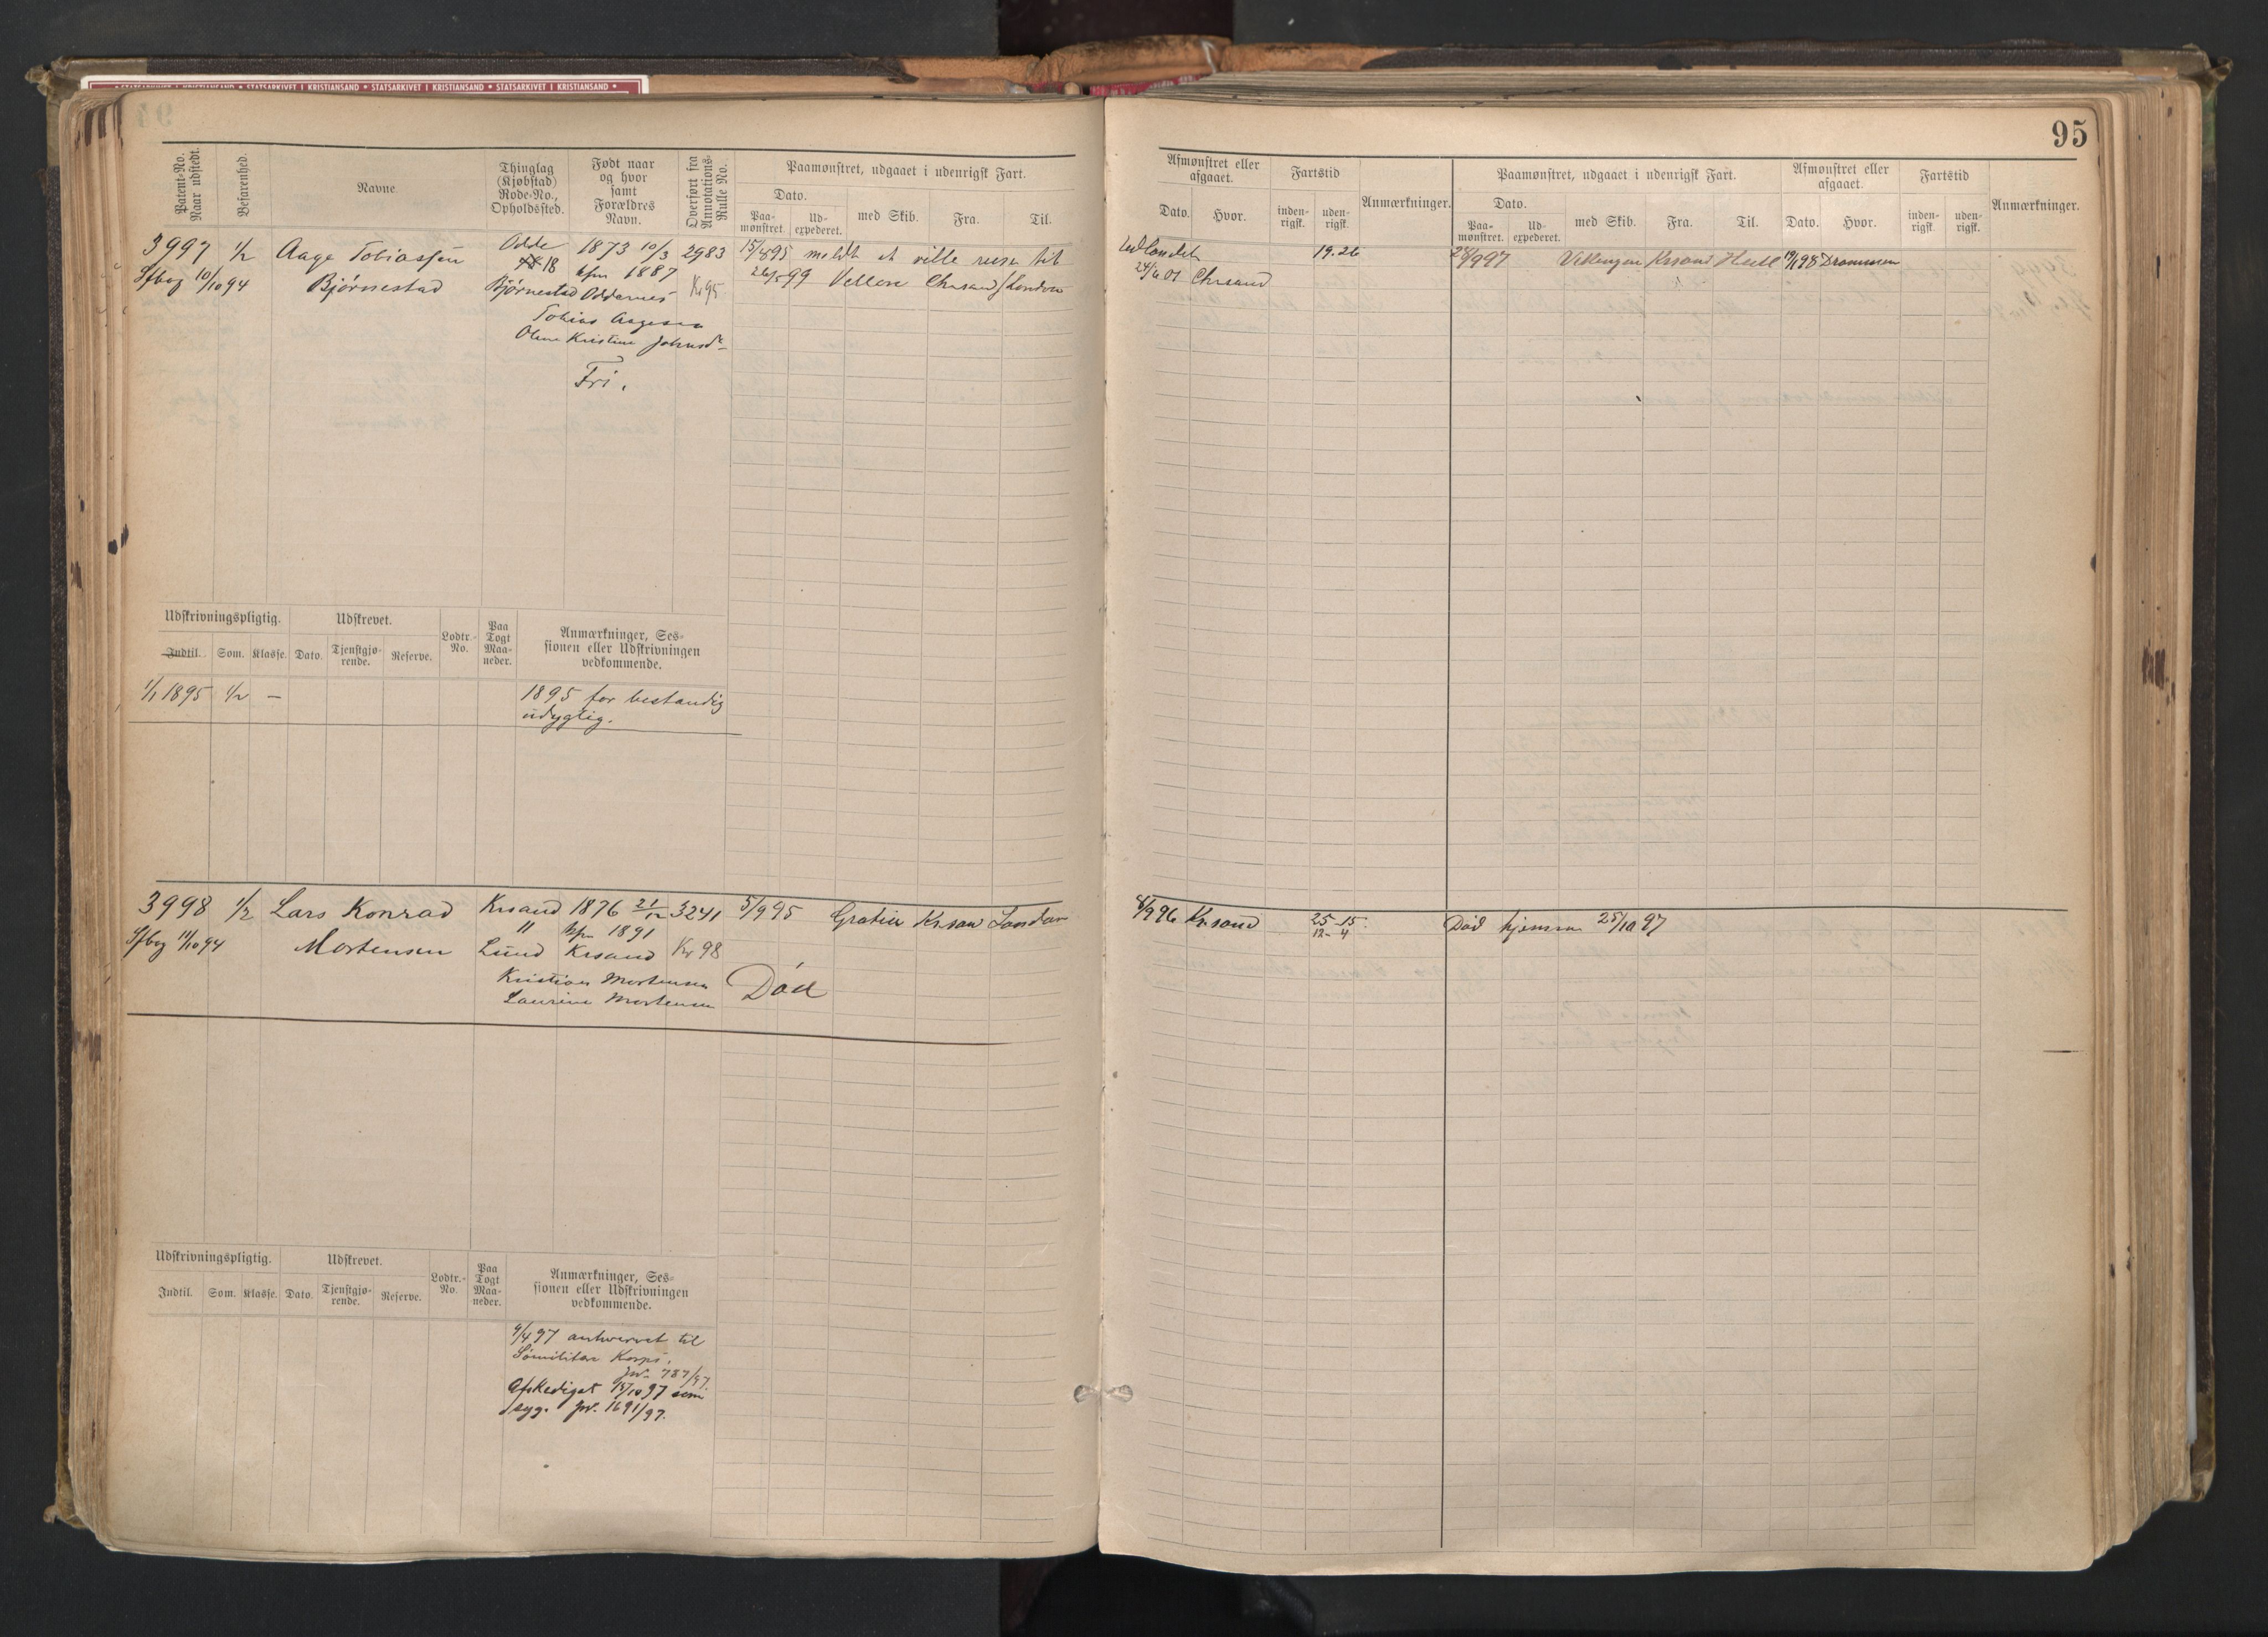 STATSARKIVET I KRISTIANSAND * STATSARKIVET I KRISTIANSAND * STATSARKIVET I KRISTIANSAND *
95
Patent-No. Naar udstedt.
Befarenhed.
Navne
Thinglag (Kjøbstad) Rode-No., Opholdssted.
Født naar og hvor samt Forældres Navn.
Overført fra Annotations-Rulle No.
Paamønstret, udgaaet i udenrigsk Fart.
Dato.
Paa-mønstret.
Ud-expederet.
med Skib.
Fra.
Til.
3997 1/2 Aage Tobiassen Odde 1873 10/3 2983 15/8 95 meldt at ville reise til
Sfbog 10/10 94 Bjørnestad 18 1887 Kr 95 99 Vellore Chrsand London
Bjørnestad Oddernes
Tobias Aagesen
Olene Kristine Johnsd
Fri.
Udskrivningspligtig.
Udskrevet.
Lodtr.-No.
Paa Togt Maa-neder.
Anmærkninger, Ses-sionen eller Udskrivningen vedkommende.
Indtil.
Som.
Klasse.
Dato.
Tjenstgjø-rende.
Reserve.
1/1 1895 1/2 — 1895 for bestandig
udygtig.
3998 1/2 Lars Konrad Krsand 1876 21/12 3241 5/9 95 Kr.san London
Sfbog 11/10 94 Mortensen " 1891
Lund Krsand Kr 98
Kristian Mortensen
Laurine Mortensen
Død
Udskrivningspligtig.
Udskrevet.
Lodtr.-No.
Paa Togt Maa-neder.
Anmærkninger, Ses-sionen eller Udskrivningen vedkommende.
Indtil.
Som.
Klasse.
Dato.
Tjenstgjø-rende.
Reserve.
9/4 97 antvervet til
Sømilitære Korps.
Jvr. 787/97.
Afskediget 15/10 97 som
syg. Jvr. 1691/97.
Afmønstret eller afgaaet.
Fartstid
Anmærkninger.
Paamønstret, udgaaet i udenrigsk Fart.
Afmønstret eller afgaaet.
Fartstid
Anmærkninger.
Dato.
Hvor.
inden-rigsk.
uden-rigsk.
Dato.
Paa-mønstret.
Ud-expederet.
med Skib.
Fra.
Til.
Dato.
Hvor.
inden-rigsk.
uden-rigsk.
Udlandet 19.26 28/9 97 Vikingen Krsand Hull 19/1 98 Drammen
24/6 01 Chrsand
8/9 96 Kr.sand 25-15 Død hjemme 25/10 97
12-4